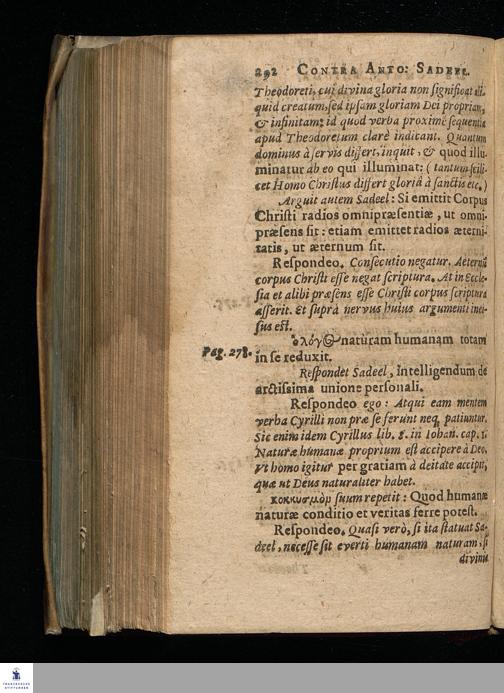 292 CONTRA ANTO: SADEEL.
Theodoreti, cui divina gloria non significat ali-
quid creatum, sed ipsam gloriam Dei propriam,
& infinitam: id quod verba proximè sequentia
apud Theodoretum clarè indicant. Quantum
dominus à servis differt, inquit, & quod illu-
minatur ab eo qui illuminat: (tantum scili-
cet Homo Christus differt gloriâ à sanctis etc.)
Arguit autem Sadeel: Si emittit Corpus
Christi radios omnipræsentiæ, ut omni-
præsens sit: etiam emittet radios æterni-
tatis, ut æternum sit.
Respondeo. Consecutio negatur. Æternũ
corpus Christi esse negat scriptura. At in Eccle-
sia et alibi præsens esse Christi corpus scriptura
asserit. Et suprà nervus huius argumenti inci-
sus est.
ὁ λόγος naturam humanam totam
Pag. 278. in se reduxit.
Respondet Sadeel, Intelligendum de
arctissima unione personali.
Respondeo ego: Atqui eam mentem
verba Cyrilli non præ se ferunt neq; patiuntur.
Sic enim idem Cyrillus lib. in Iohan. cap. 1.
Naturæ humanæ proprium est accipere à Deo.
Vt homo igitur per gratiam à deitate accipit,
quæ ut Deus naturaliter habet.
κοκκυσμὸν suum repetit: Quod humanæ
naturæ conditio et veritas ferre potest.
Respondeo. Quasi verò, si ita statuat Sa-
deel, necesse sit everti humanam naturam, si
divinis
FRANCKESCHE
STIFTUNGEN